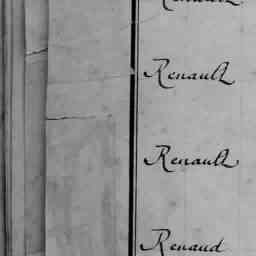 Renault
Renault
Renaud